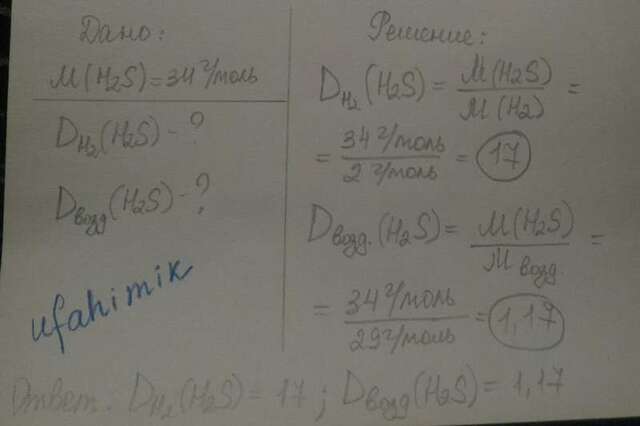 Дано:
M(H2S)=34 г/моль
DH2(H2S) - ?
Dвозд(H2S) - ?
ufahimik
Решение:
DH2(H2S) = M(H2S) / M(H2) =
= 34 г/моль / 2 г/моль = 17
Dвозд.(H2S) = M(H2S) / M возд. =
= 34 г/моль / 29 г/моль = 1,17
Ответ: DH2(H2S) = 17 ; Dвозд(H2S) = 1,17